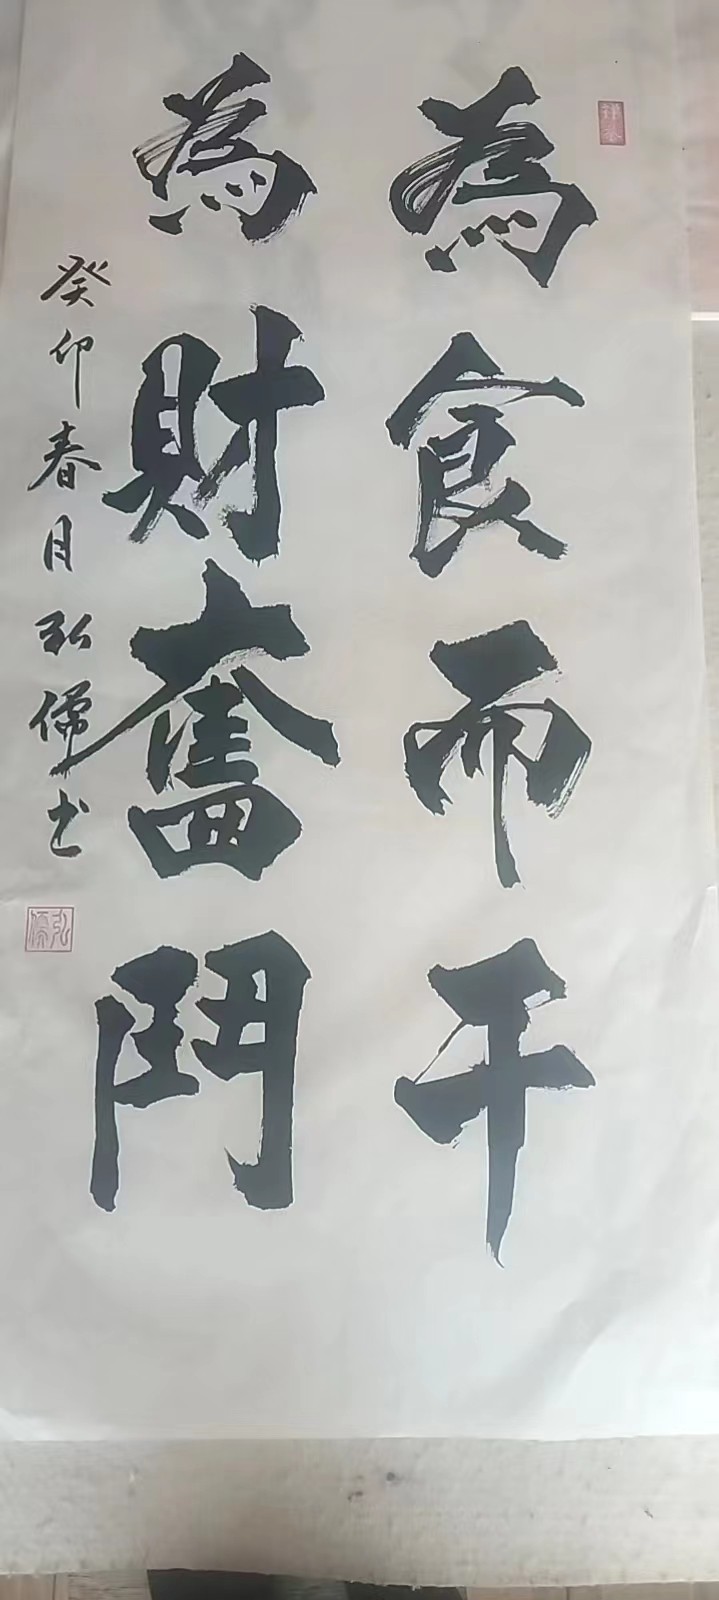 為食而干
為財奮鬥
癸卯春月弘儒书
弘儒